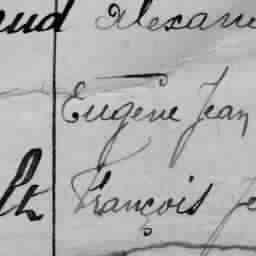 aud Alexan
Eugène Jean
lt François Je